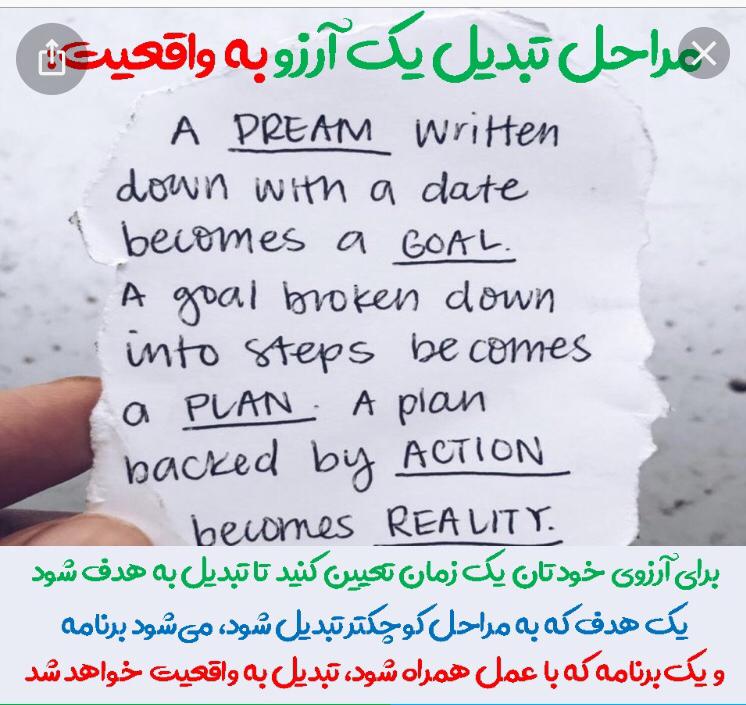 مراحل تبدیل یک آرزو به واقعیت!
A DREAM written
down with a date
becomes a GOAL.
A goal broken down
into steps becomes
a PLAN. A plan
backed by ACTION
becomes REALITY.
برای آرزوی خودتان یک زمان تعیین کنید تا تبدیل به هدف شود
یک هدف که به مراحل کوچکتر تبدیل شود، می‌شود برنامه
و یک برنامه که با عمل همراه شود، تبدیل به واقعیت خواهد شد